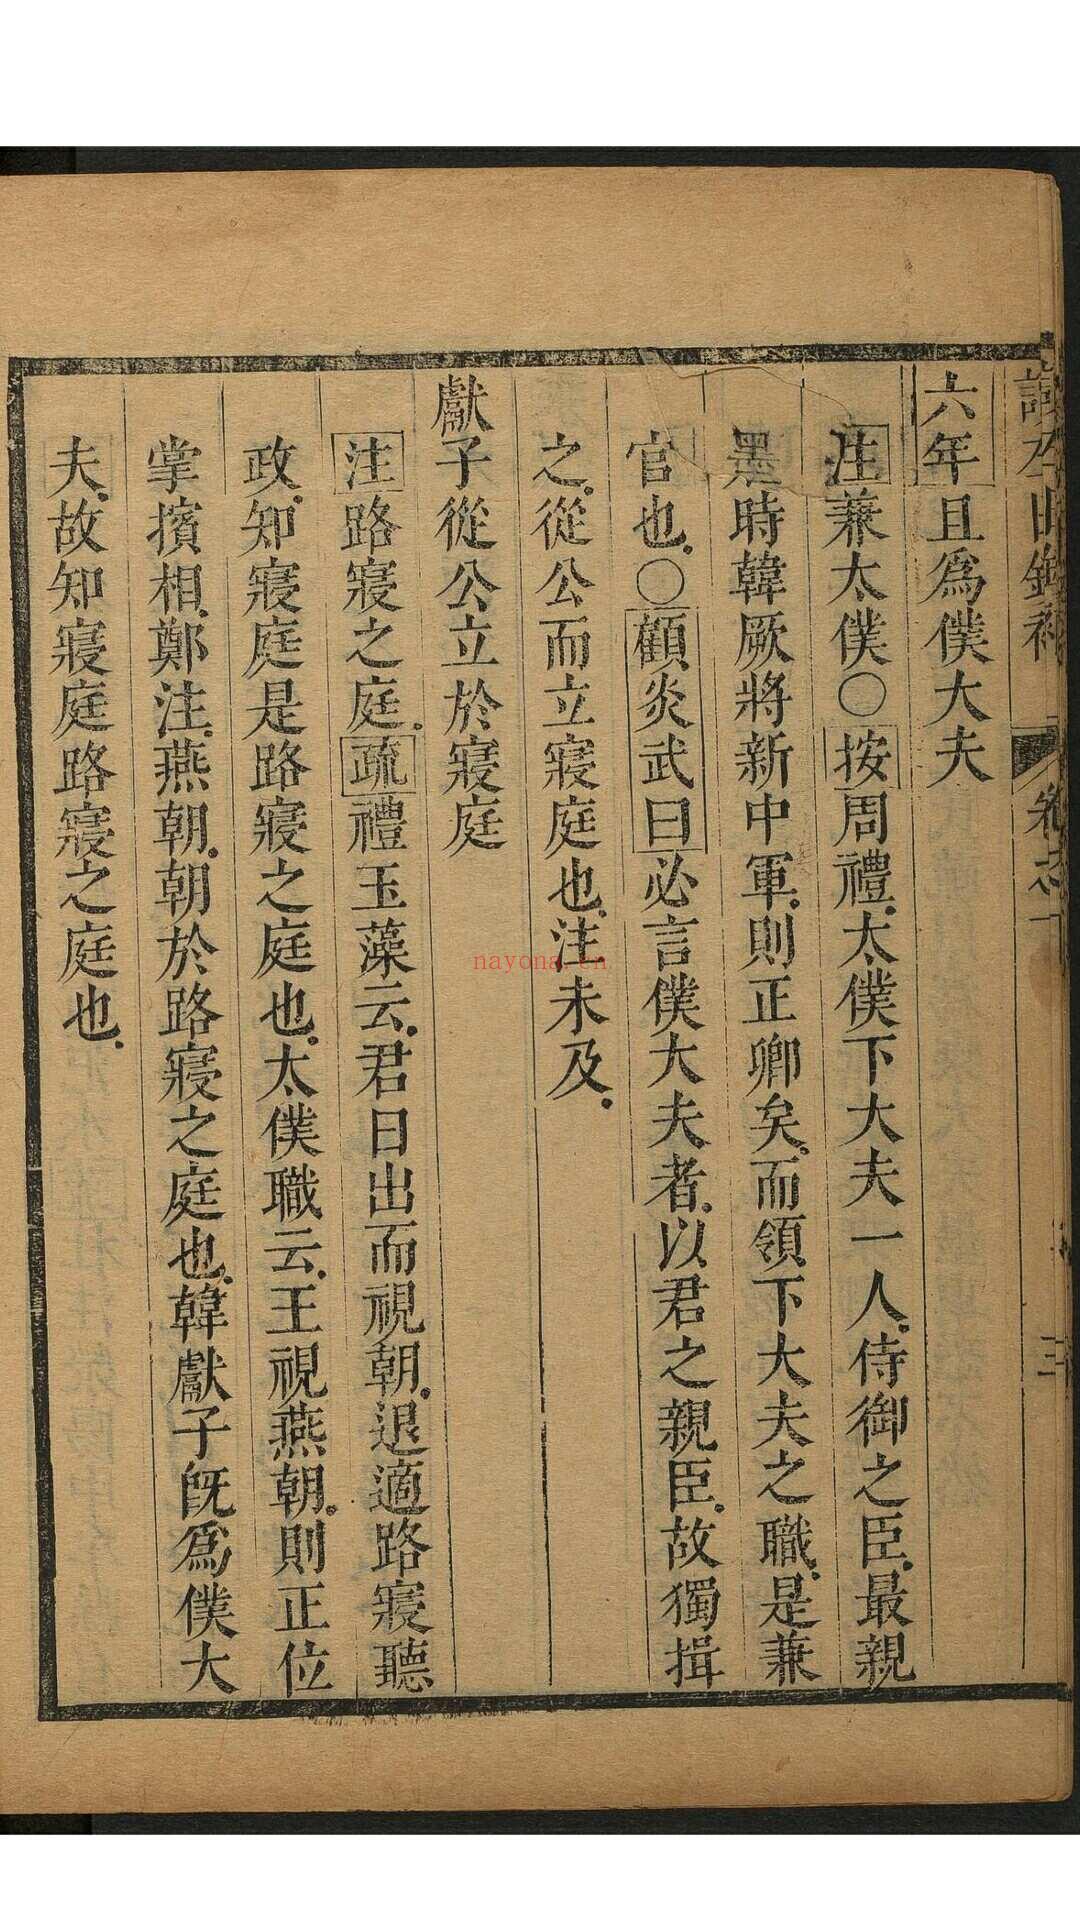 六年且爲僕大夫
注兼太僕○按周禮太僕下大夫一人侍御之臣最親
墨時韓厥將新中軍則正卿矣而領下大夫之職是兼
官也○顧炎武曰必言僕大夫者以君之親臣故獨揖
之從公而立寢庭也注未及
獻子從公立於寢庭
注路寢之庭疏禮玉藻云君日出而視朝退適路寢聽
政知寢庭是路寢之庭也太僕職云王視燕朝則正位
掌擯相鄭注燕朝朝於路寢之庭也韓獻子旣爲僕大
夫故知寢庭路寢之庭也
nayona.cn